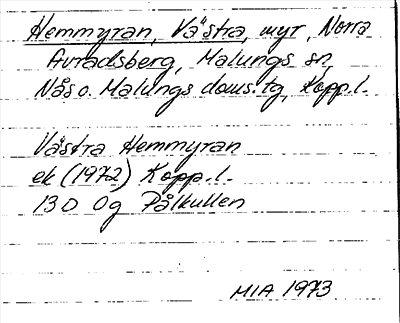 Hemmyran, Västra, myr, Norra
Avradsberg, Malungs sn,
Nås o. Malungs doms. tg, Kopp. l.
Västra Hemmyran
ek (1972) Kopp. l.
13 D 0g Pålkullen
MIA 1973